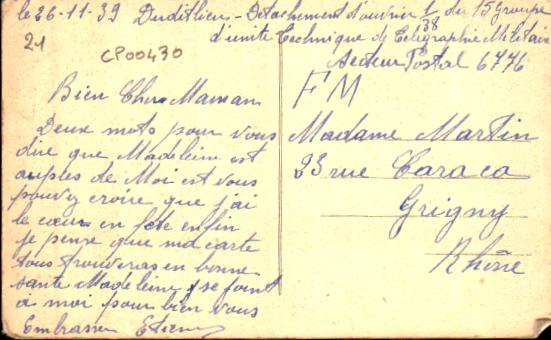 le 26-11-39 Duditlieu - Detachement d'ouvrier 1 du 15 Groupe
d'unite Technique de Télégraphie Militaire
38
Secteur Postal 6776
21
CP00430
FM
Bien Chere Maman
Deux mots pour vous
dire que Madeleine est
auples de Moi est vous
pouvez croire que j'ai
le cœur en fete enfin
je pense que ma carte
tous trouveras en bonne
sante Madeleine se joint
à moi pour bien vous
Embrasser Etienne
Madame Martin
23 rue Caraca
Grigny
Rhône